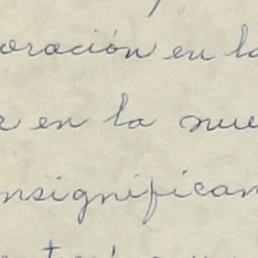 oración en la
r en la nue
nsignifican